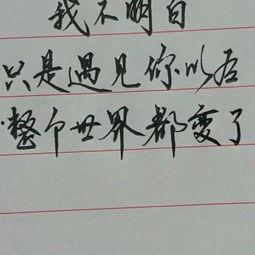 我不明白
只是遇见你以后
整个世界都变了